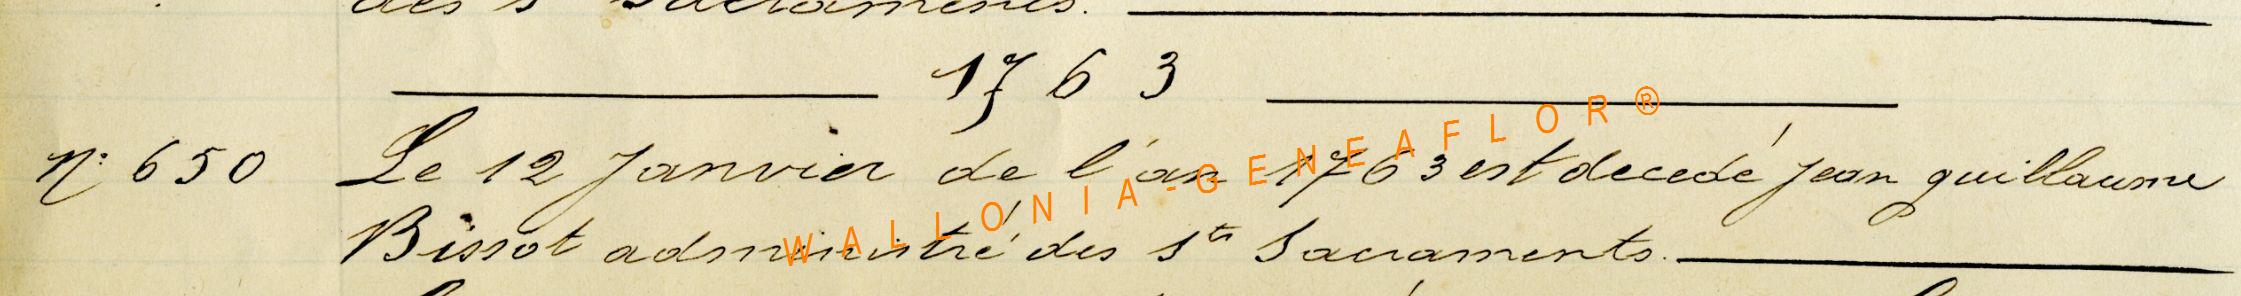 des Sts Sacraments.
1763
N° 650 Le 12 Janvier de l'an 1763 est decedé Jean guillaume
Bissot administré des Sts Sacraments.
WALLONIA-GENEAFLOR®